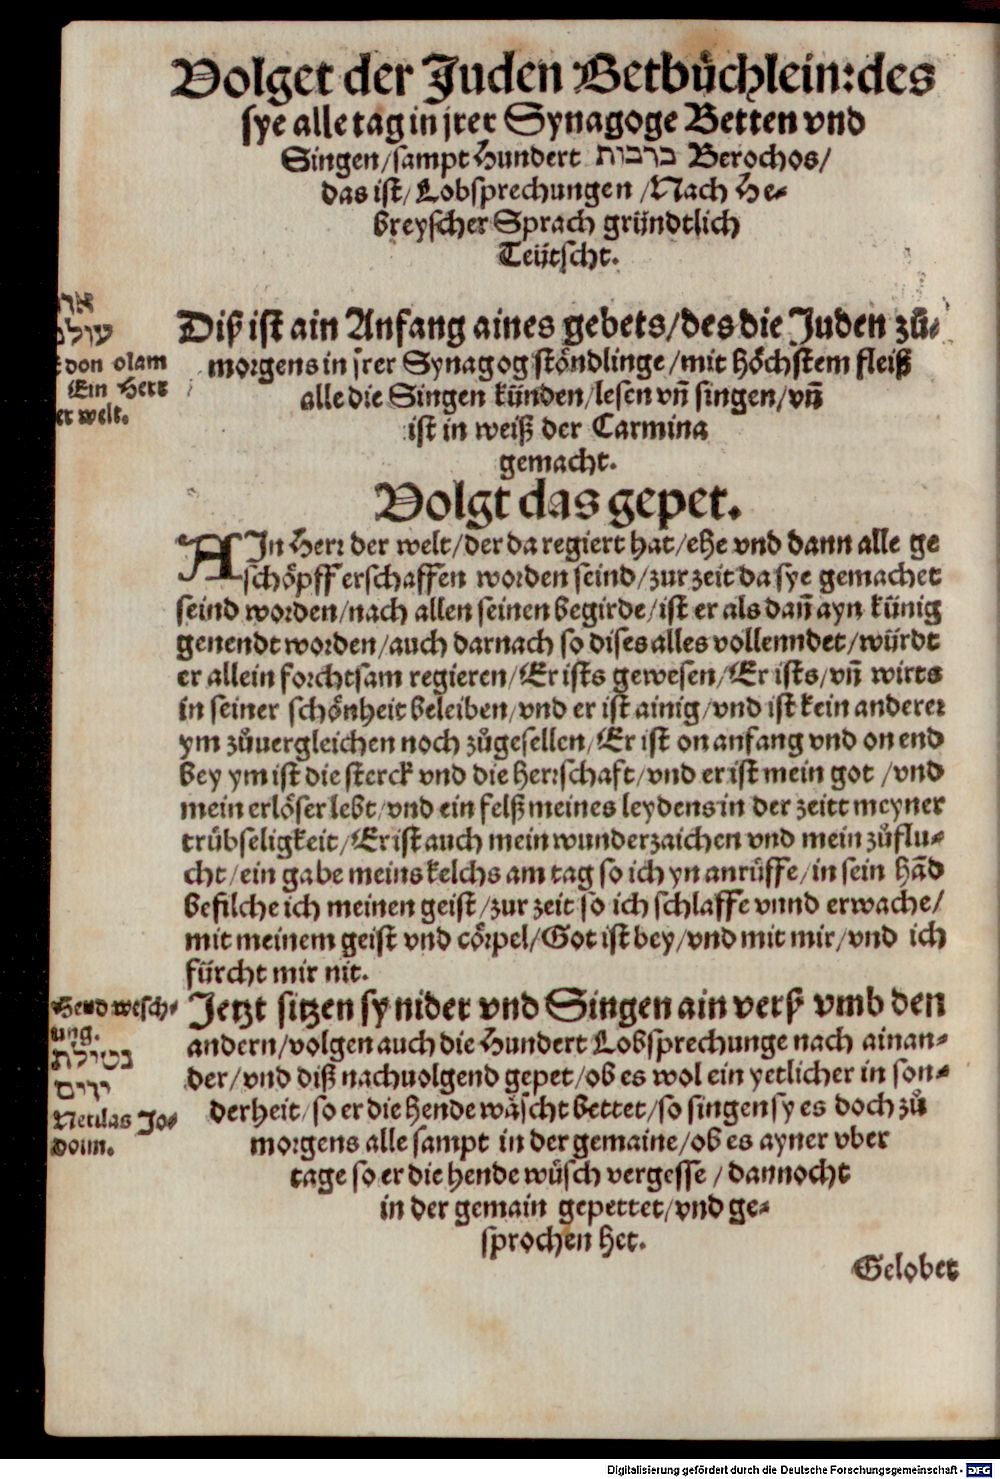 Volget der Juden Betbuͤchlein:des
sye alle tag in jrer Synagoge Betten vnd
Singen/sampt Hundert ברכות Berochos/
das ist/Lobsprechungen/Nach He-
breyscher Sprach gründtlich
Teütscht.
עולם
don olam
Ein Herr
er welt.
Diß ist ain Anfang aines gebets/des die Juden zuͤ-
morgens in jrer Synagog stöndlinge/mit höchstem fleiß
alle die Singen künden/lesen vñ singen/vñ
ist in weiß der Carmina
gemacht.
Volgt das gepet.
AIn Herr der welt/der da regiert hat/ehe vnd dann alle ge
schöpff erschaffen worden seind/zur zeit da sye gemachet
seind worden/nach allen seinen begirde/ist er als dañ ayn künig
genendt worden/auch darnach so dises alles vollenndet/würdt
er allein forchtsam regieren/Er ists gewesen/Er ists/vñ wirts
in seiner schönheit beleiben/vnd er ist ainig/vnd ist kein anderer
ym zuͦuergleichen noch zuͦgesellen/Er ist on anfang vnd on end
bey ym ist die sterck vnd die herrschaft/vnd er ist mein got/vnd
mein erlöser lebt/vnd ein felß meines leydens in der zeitt meyner
trübseligkeit/Er ist auch mein wunderzaichen vnd mein zuͦflu-
cht/ein gabe meins kelchs am tag so ich yn anruͤffe/in sein hãd
befilche ich meinen geist/zur zeit so ich schlaffe vnnd erwache/
mit meinem geist vnd cörpel/Got ist bey/vnd mit mir/vnd ich
fürcht mir nit.
Hend wesch-
ung.
נטילת
ידים
Netilas Jo-
doim.
Jetzt sitzen sy nider vnd Singen ain verß vmb den
andern/volgen auch die Hundert Lobsprechunge nach ainan-
der/vnd diß nachuolgend gepet/ob es wol ein yetlicher in son-
derheit/so er die hende wäscht bettet/so singen sy es doch zuͦ
morgens alle sampt in der gemaine/ob es ayner vber
tage so er die hende wuͤsch vergesse/dannocht
in der gemain gepettet/vnd ge-
sprochen het.
Gelobet
Digitalisierung gefördert durch die Deutsche Forschungsgemeinschaft - DFG